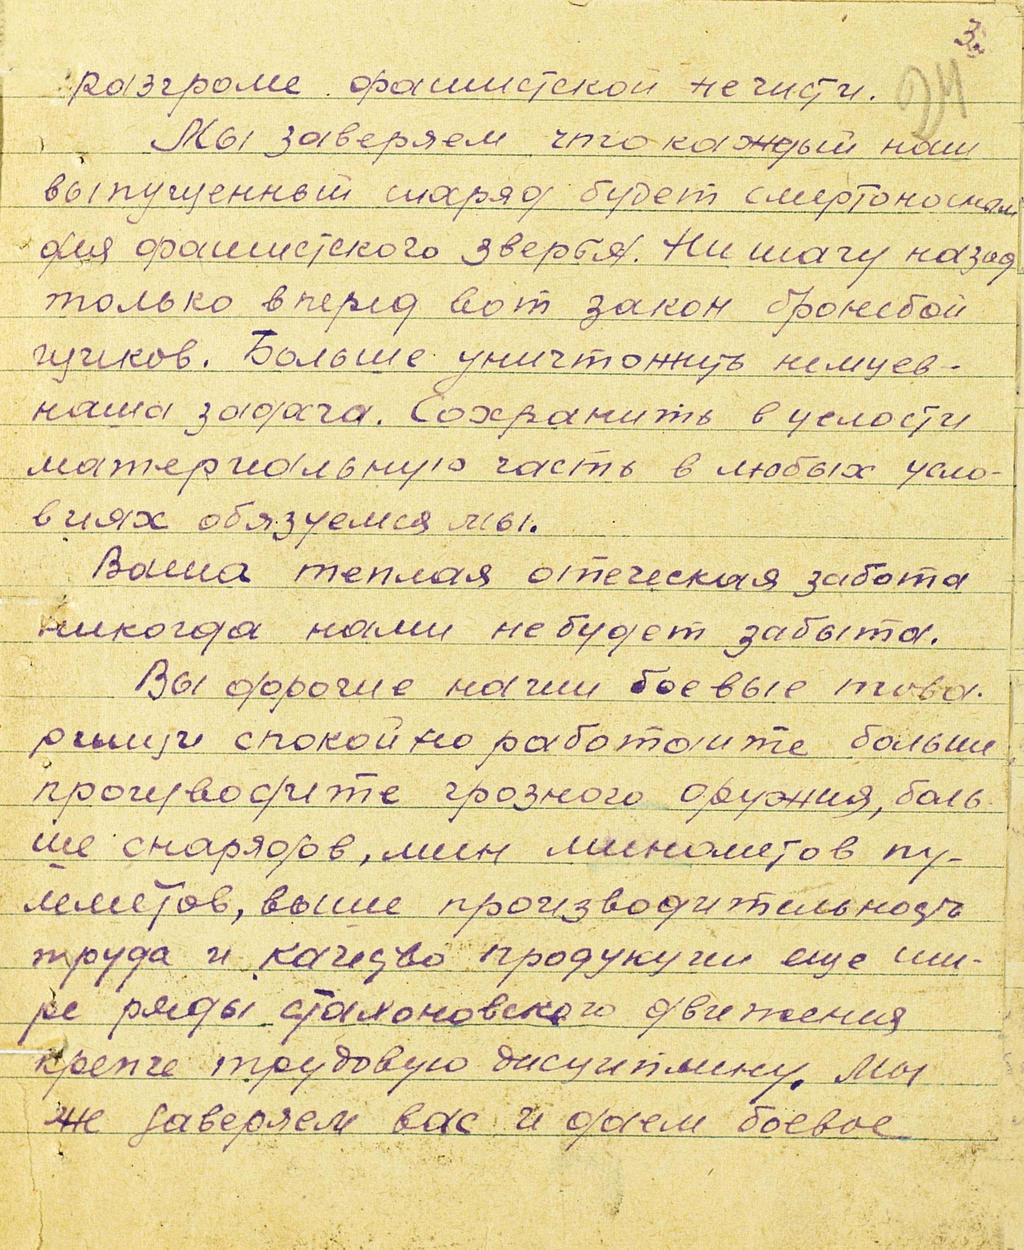 3
24
разгроме фашистской нечисти.
Мы заверяем что каждый наш
выпущенный снаряд будет смертоносным
для фашистского зверья. Ни шагу назад
только вперед вот закон бронебой
щиков. Больше уничтожить немцев-
наша задача. Сохранить в целости
материальную часть в любых усло-
виях обязуемся мы.
Ваша теплая отеческая забота
никогда нами не будет забыта.
Вы дорогие наши боевые това-
рищи спокойно работайте больше
производите грозного оружия, боль
ше снарядов, мин минометов пу-
леметов, выше производительность
труда и качество продукции еще ши-
ре ряды стахоновского движения
крепче трудовую дисциплину. Мы
же заверяем вас и даем боевое